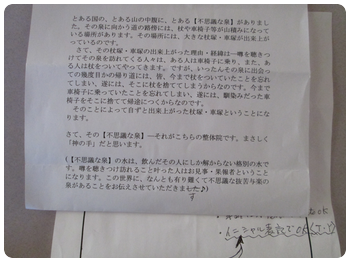 とある国の、とある山の中腹に、とある【不思議な泉】がありまし
た。その泉に向かう道の路傍には、杖や車椅子等が山積みになって
いる場所があります。その場所には、大きな杖塚・車塚が出来上が
っているのです。
さて、その杖塚・車塚の出来上がった理由・経緯は―噂を聴きつ
けてその泉を訪れてくる人々は、ある人は車椅子に乗り、また、あ
る人は杖をついてやってきます。ですが、いったんその泉に出会っ
ての幾度目かの帰り道には、皆、今まで杖をついていたことを忘れ
てしまい、遂には、そこに杖を捨ててしまうからなのです。今まで
車椅子に乗っていたことを忘れてしまい、遂には、馴染みだった車
椅子をそこに捨てて帰途につくからなのです。
そのことによって自ずと出来上がった杖塚・車塚ということにな
ります。
さて、その【不思議な泉】―それがこちらの整体院です。まさしく
「神の手」だと思います。
(【不思議な泉】の水は、飲んだその人にしか解からない格別の水で
す。噂を聴きつけ訪れること叶った人はお見事・果報者ということ
になります。この世界に、なんとも有り難くて不思議な抜苦与楽の
泉があることをお伝えさせていただきました♪)
す
OK
イニシャル表記で